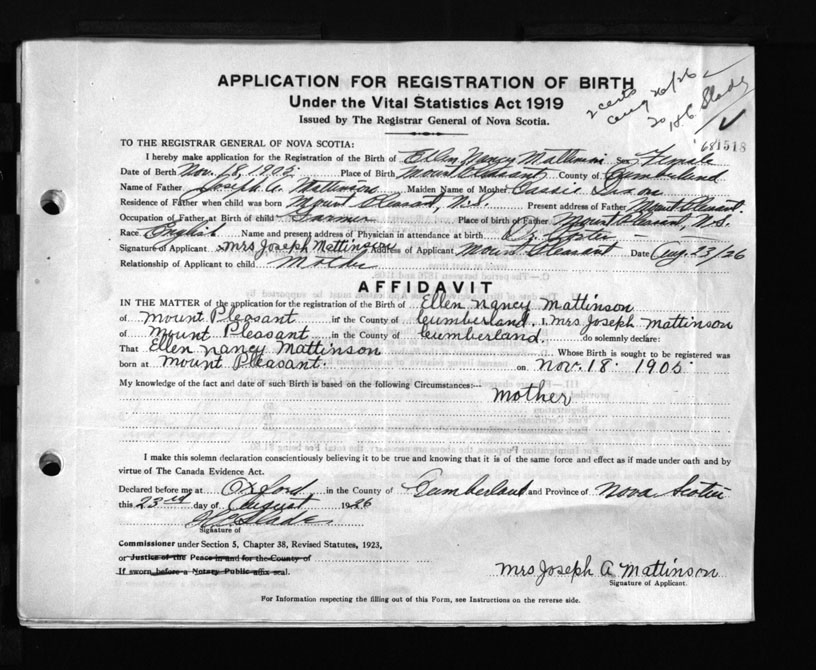 APPLICATION FOR REGISTRATION OF BIRTH
Under the Vital Statistics Act 1919
Issued by The Registrar General of Nova Scotia.
2 certs
Aug 26/26
Slade
681518
TO THE REGISTRAR GENERAL OF NOVA SCOTIA:
I hereby make application for the Registration of the Birth of Ellen Nancy Mattinson Sex Female
Date of Berth Nov. 18, 1905 Place of Birth Mount Pleasant County of Cumberland
Name of Father Joseph A. Mattinson Maiden Name of Mother Cassie
Residence of Father when child was born Mount Pleasant, N.S. Present address of Father Mount Pleasant.
Occupation of Father at Birth of child Farmer Place of birth of Father Mount Pleasant, N.S.
Race English Name and present address of Physician in attendance at birth
Signature of Applicant Mrs Joseph Mattinson Address of Applicant Mount Pleasant Date Aug. 23/26
Relationship of Applicant to child Mother
AFFIDAVIT
IN THE MATTER of the application for the registration of the Birth of Ellen Nancy Mattinson
of Mount Pleasant in the County of Cumberland, I, Mrs Joseph Mattinson
of Mount Pleasant in the County of Cumberland. do solemnly declare:
That Ellen Nancy Mattinson Whose Birth is sought to be registered was
born at Mount Pleasant. on Nov. 18 1905
My knowledge of the fact and date of such Birth is based on the following Circumstances:—
Mother
I make this solemn declaration conscientiously believing it to be true and knowing that it is of the same force and effect as if made under oath and by
virtue of The Canada Evidence Act.
Declared before me at Oxford in the County of Cumberland and Province of Nova Scotia
this 23rd day of August 1926
Slade
Signature of
Commissioner under Section 5, Chapter 38, Revised Statutes, 1923,
or Justice of the Peace in and for the County of
If sworn before a Notary Public affix seal.
Mrs Joseph A Mattinson
Signature of Applicant.
For Information respecting the filling out of this Form, see Instructions on the reverse side.